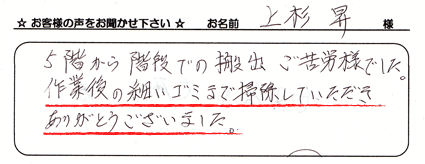 ☆ お客様の声をお聞かせ下さい ☆ お名前 上杉 昇 様
5階から階段での搬出 ご苦労様でした。
作業後の細いゴミまで掃除していただき
ありがとうございました。